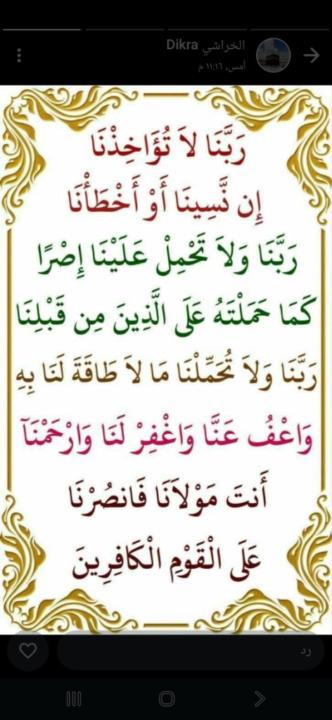 الخراشي Dikra
أمس، ١١:١٦ م
رَبَّنَا لاَ تُؤَاخِذْنَا
إِن نَّسِينَا أَوْ أَخْطَأْنَا
رَبَّنَا وَلاَ تَحْمِلْ عَلَيْنَا إِصْرًا
كَمَا حَمَلْتَهُ عَلَى الَّذِينَ مِن قَبْلِنَا
رَبَّنَا وَلاَ تُحَمِّلْنَا مَا لاَ طَاقَةَ لَنَا بِهِ
وَاعْفُ عَنَّا وَاغْفِرْ لَنَا وَارْحَمْنَآ
أَنتَ مَوْلاَنَا فَانصُرْنَا
عَلَى الْقَوْمِ الْكَافِرِينَ
رد